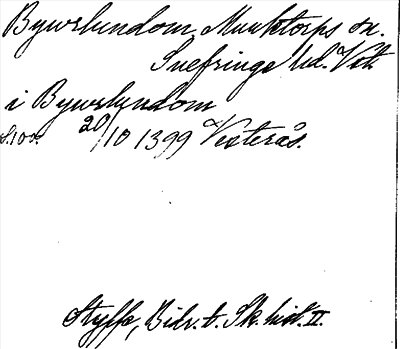 Bywrlundom, Munktorps sn.
Snefringe hd. Vstm.
i Bywrlyndom
S. 100. 20/10 1399 Vesterås.
Styffe, Bidr. t. Sk. hist. II.